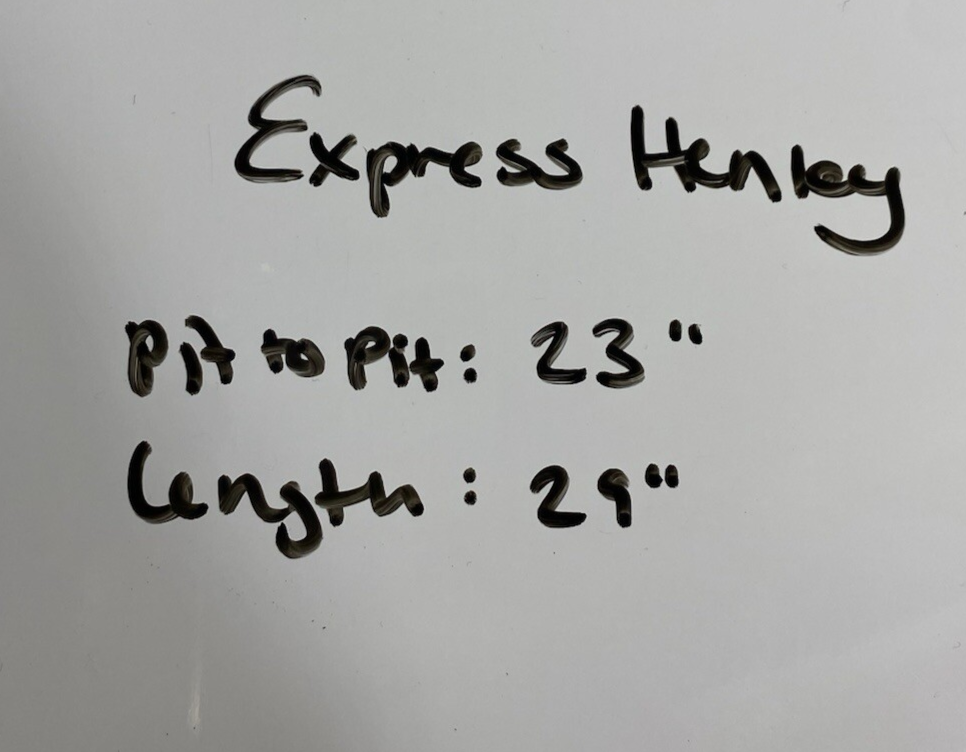 Express Henley
Pit to Pit: 23"
Length: 29"